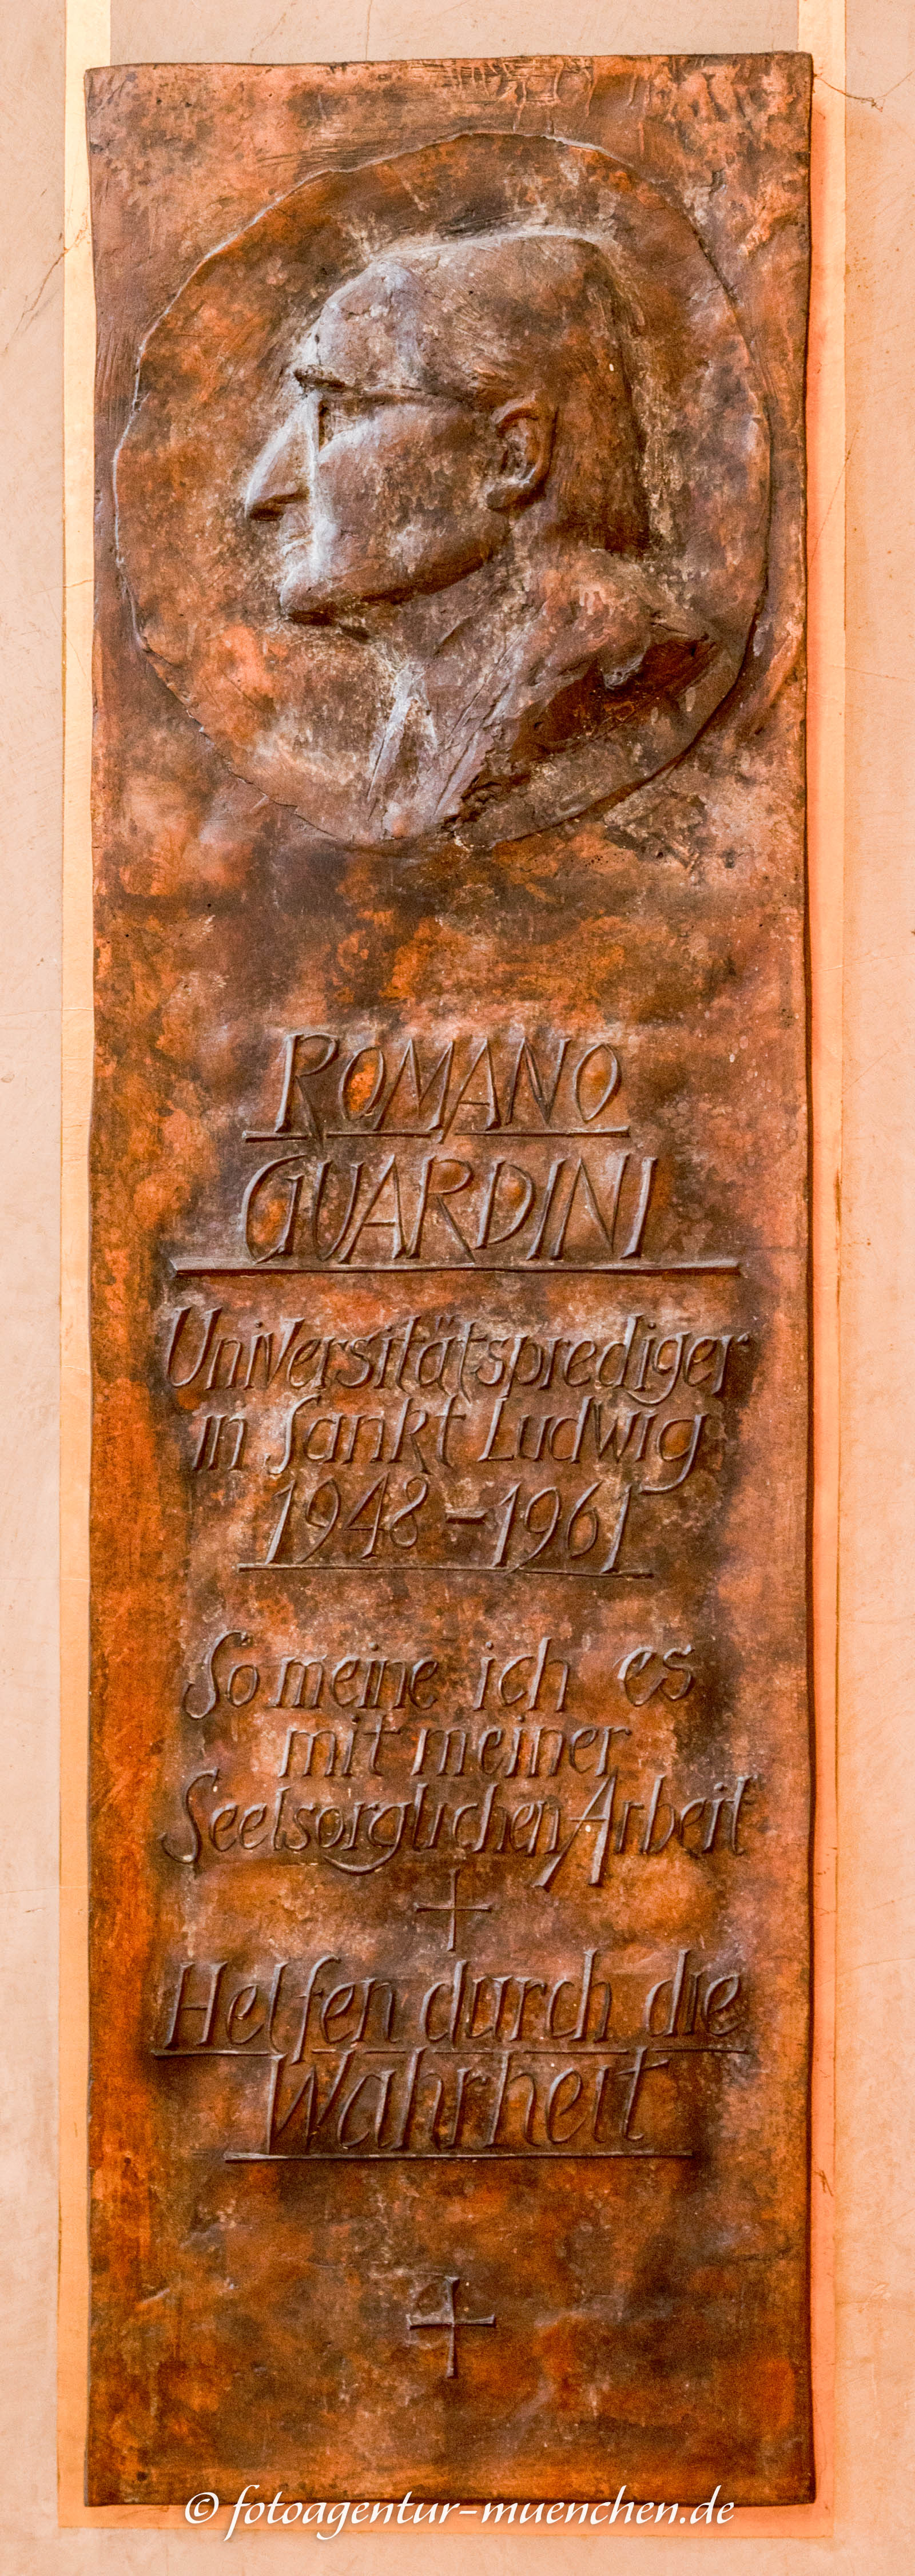 ROMANO
GUARDINI
Universitätsprediger
in Sankt Ludwig
1948 - 1961
So meine ich es
mit meiner
Seelsorglichen Arbeit
Helfen durch die
Wahrheit
© fotoagentur-muenchen.de